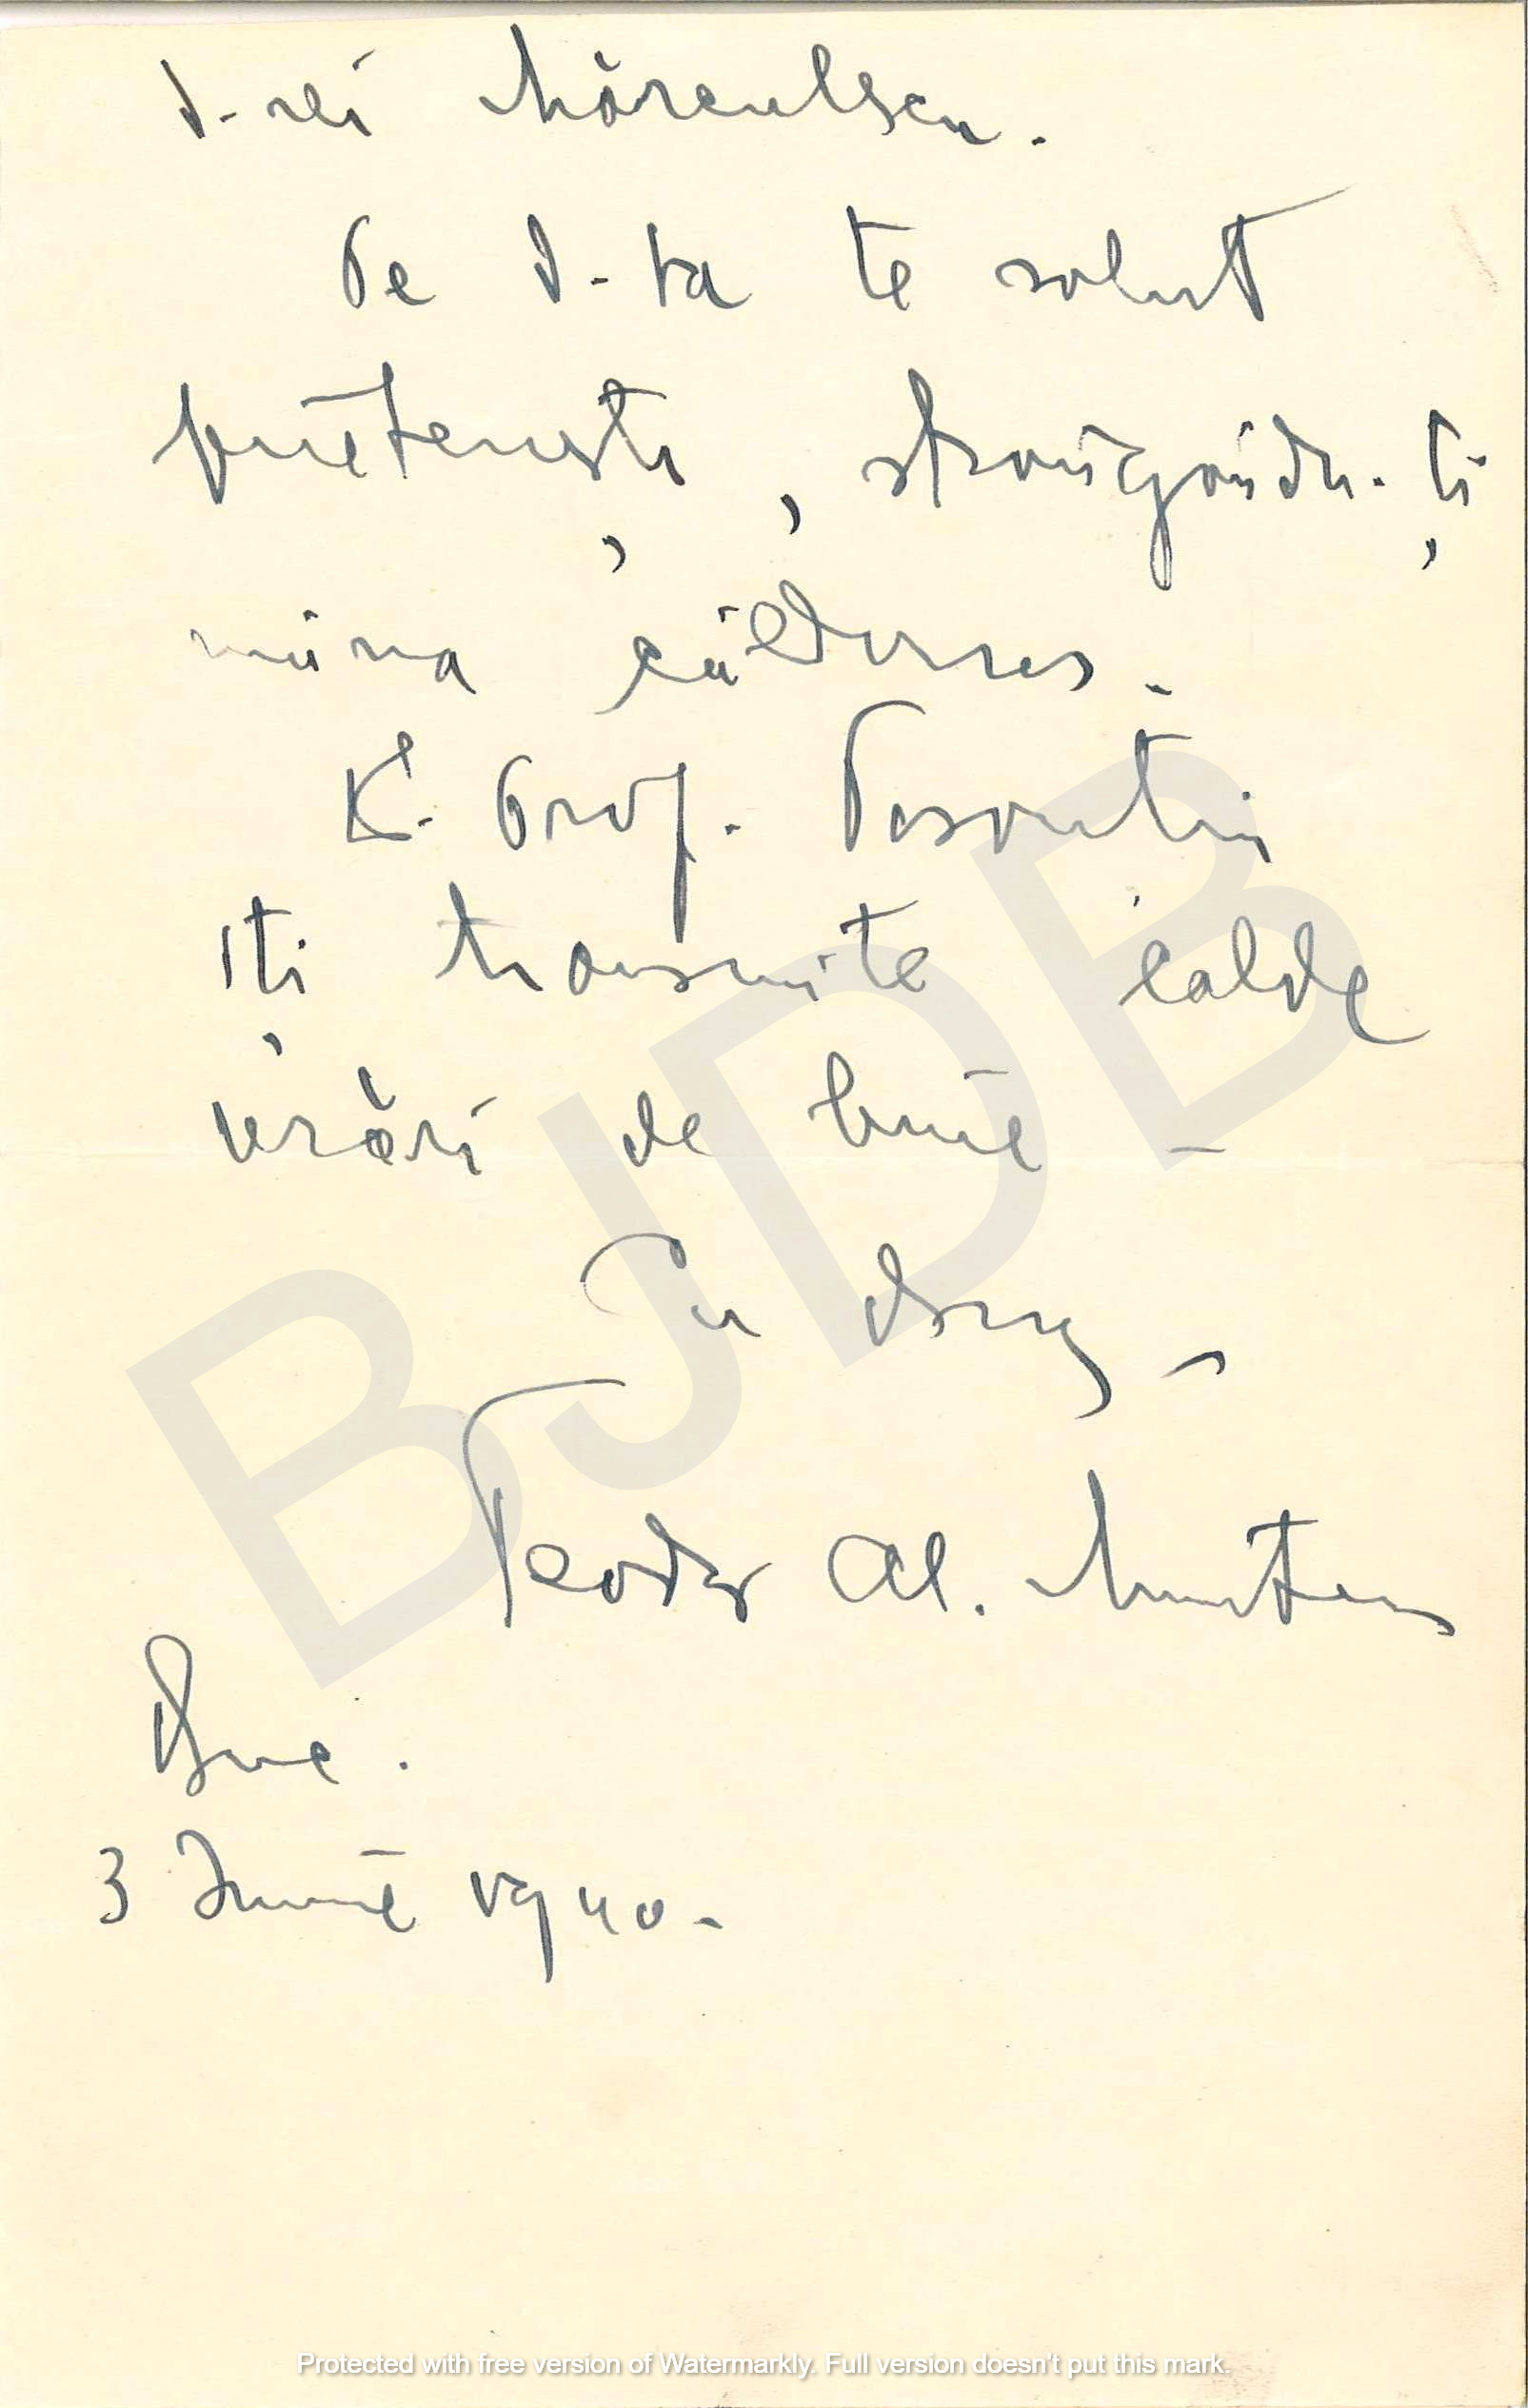 D-nei Mărculescu.
Pe D-ta te salut
prietenește, strângându-ți
mâna călduros.
Prof.
iți transmite calde
urări de bine –
Cu drag,
Teodor Al. Munteanu
Buc.
3 Iunie 1940.
BJDB
Protected with free version of Watermarkly. Full version doesn't put this mark.